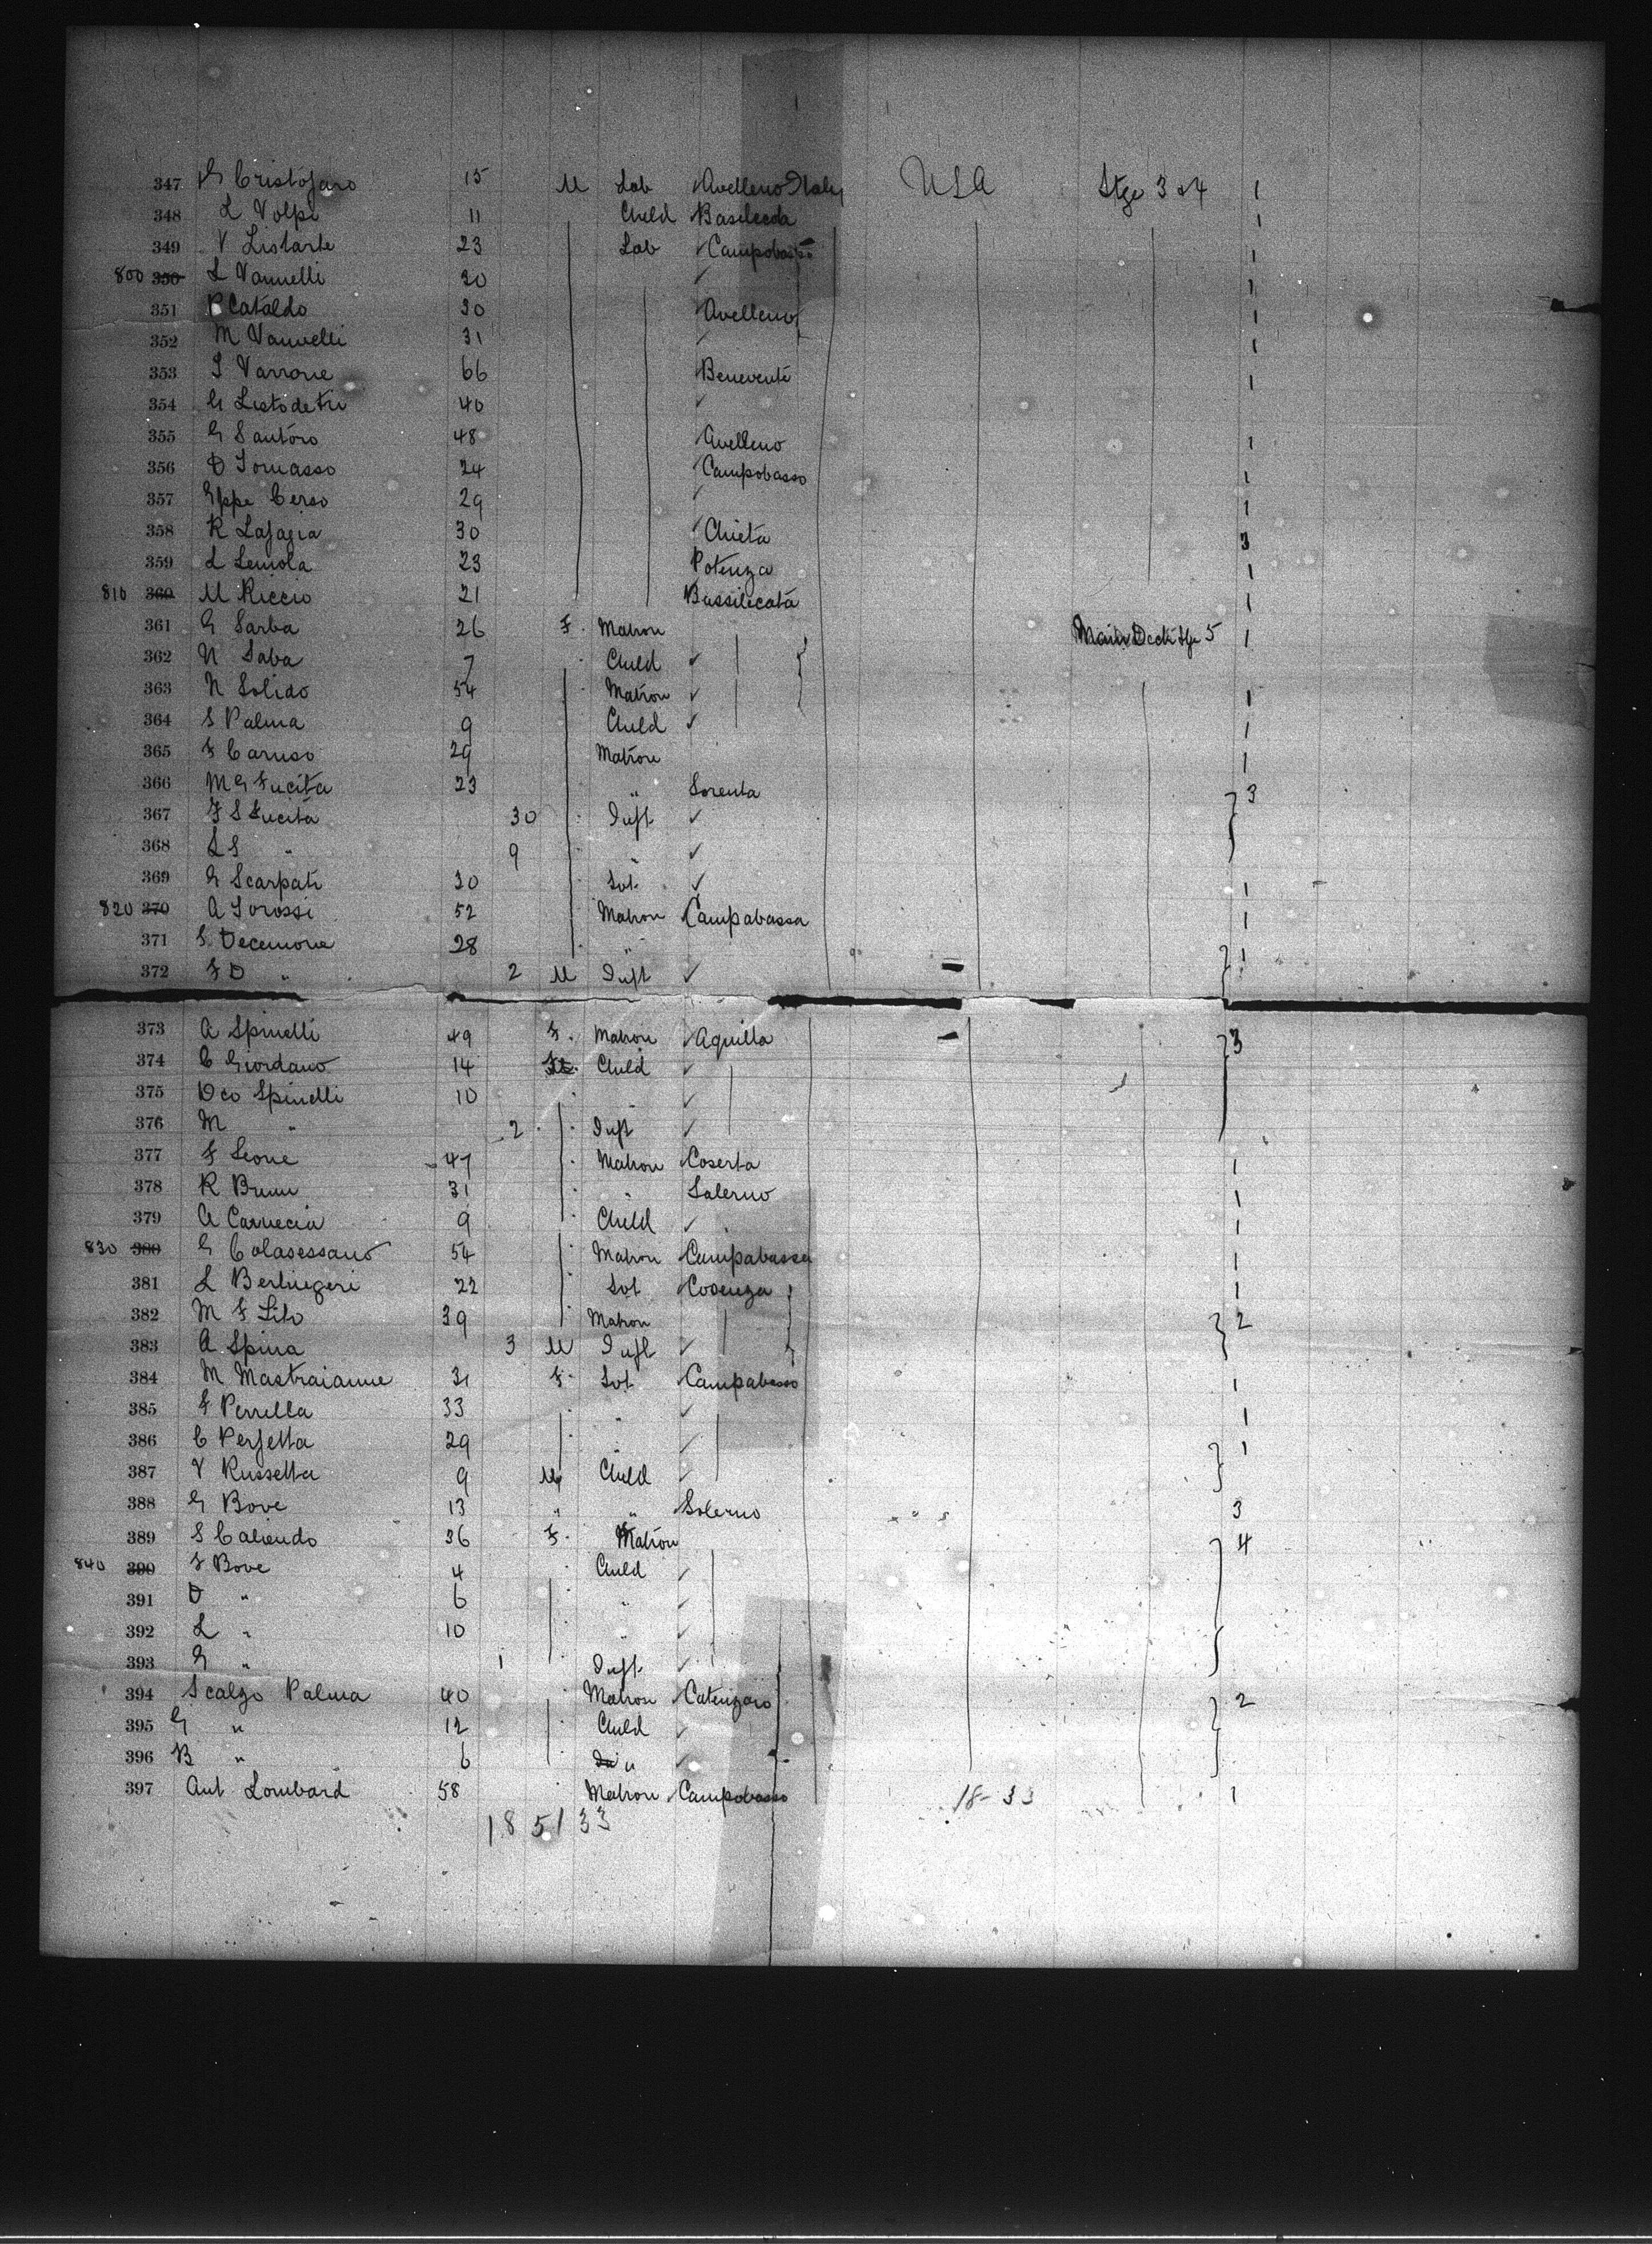 347 G Cristofaro 15 M Lab Avelleno Italy USA Stge 3 & 4 1
348 L Volpe 11 Child Basilecda 1
349 V Listarte 23 Lab Campobasso 1
800 350 L Vannelli 30 1
351 P Cataldo 30 Avelleno 1
352 M Vannelli 31 1
353 I Varrone 66 Benevente 1
354 G Listodetri 40
355 G Santoro 48 Avelleno 1
356 D Tomasso 24 Campobasso 1
357 Gppe Cerso 29 1
358 R Lafagia 30 Chieta 3
359 L Lemola 23 Potenza 1
810 360 M Riccio 21 Bassilicata 1
361 G Sarba 26 F. Matron Main Deck Stge 5 1
362 N Saba 7 Child
363 N Solido 54 Matron 1
364 S Palma 9 Child 1
365 F Caruso 29 Matron 1
366 M G Fucita 23 " Sorenta 3
367 F S Fucita 30 Inft
368 L S " 9 "
369 G Scarpati 30 Sot. 1
820 370 A Torossi 52 Matron Campabassa 1
371 S. Decemone 28 " 1
372 F D " 2 M Inft
373 A Spinelli 49 F. Matron Aquilla 3
374 C Giordano 14 Child
375 Dco Spinelli 10
376 M " 2 Inft
377 F Leone 47 Matron Coserta 1
378 R Brunn 31 " Salerno 1
379 A Carnecia 9 Child 1
830 380 G Colasessano 54 Matron Campabassa 1
381 L Berlingeri 22 Sot Cosenza 1
382 M F Lito 39 Matron 2
383 A Spina 3 M Inft
384 M Mastraianne 31 F. Sot Campabasso 1
385 F Perrella 33 " 1
386 C Perfetta 29 " 1
387 V Russetta 9 M Child
388 G Bove 13 " " Solerno 3
389 S Caliendo 36 F. Matron 4
840 390 F Bove 4 Child
391 D " 6 "
392 L " 10 "
393 G " 1 Inft.
394 Scalzo Palma 40 Matron Catenzaro 2
395 G " 12 Child
396 B " 6 "
397 Ant Lombard 58 Matron Campobasso 18-33 1
185133